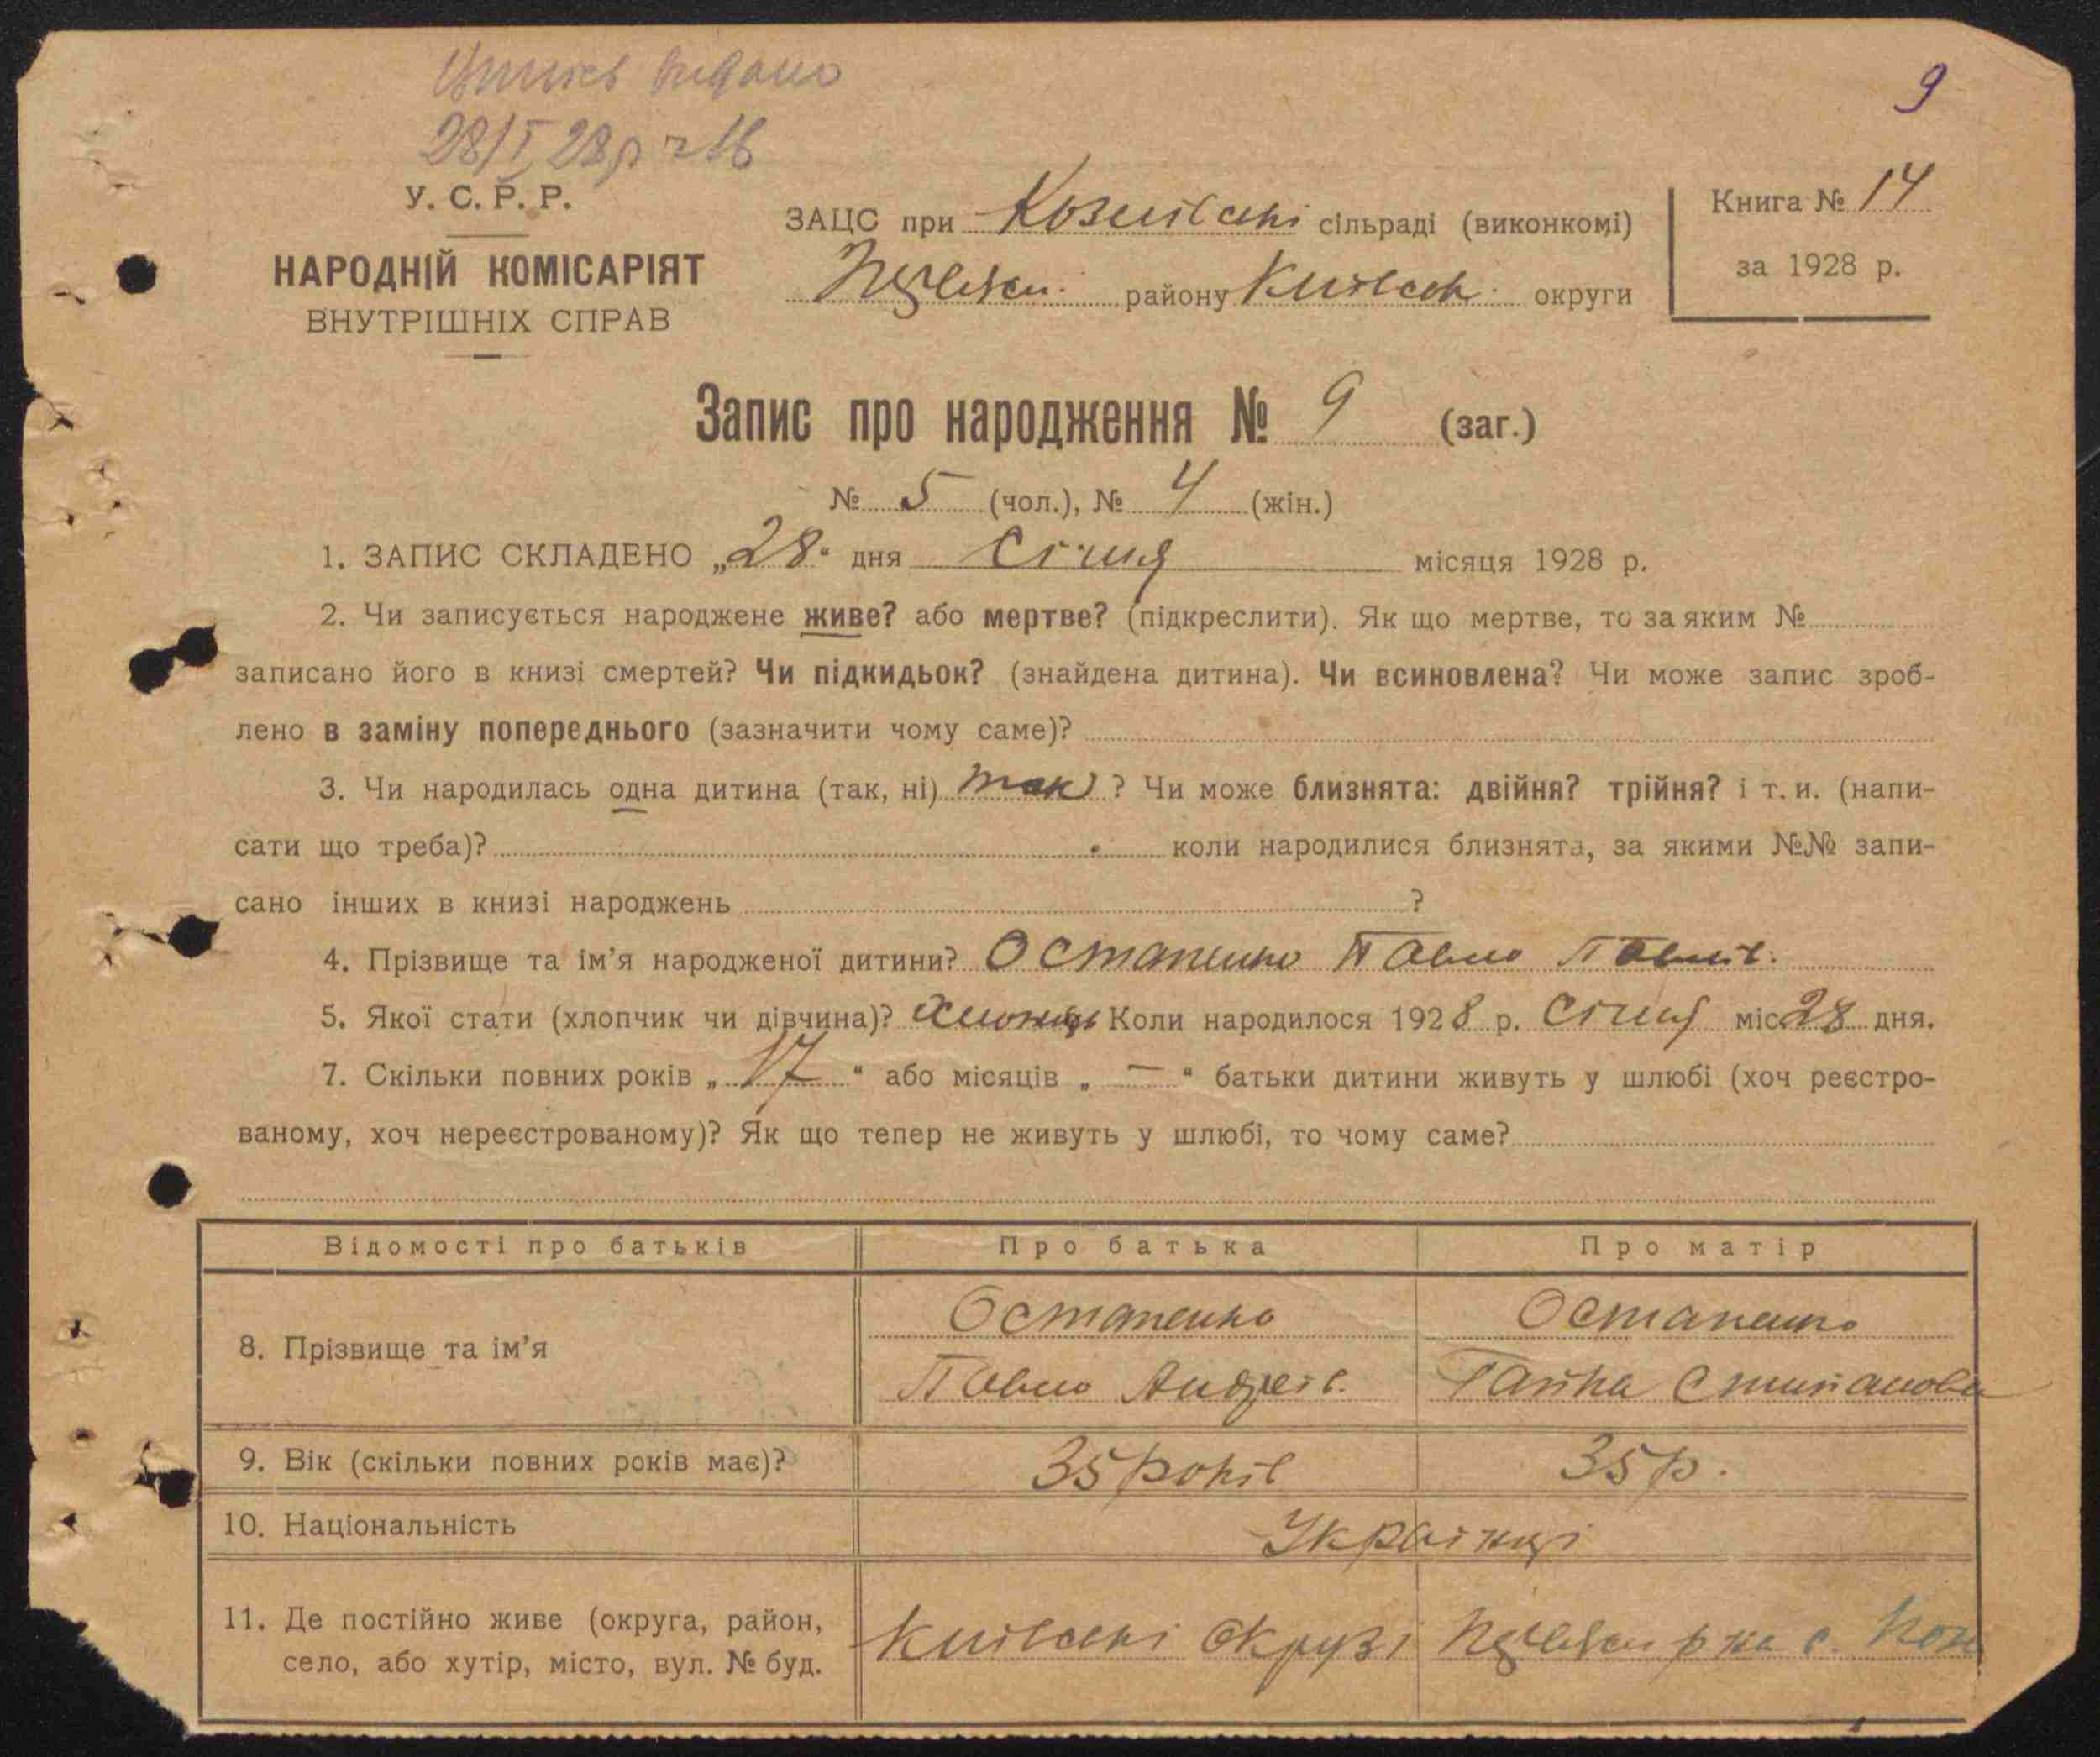 видано
28/I 28р ч 16
9
У. С. Р. Р.
НАРОДНІЙ КОМІСАРІЯТ
ВНУТРІШНІХ СПРАВ
ЗАЦС при сільраді (виконкомі)
району Київськ. округи
Книга № 14
за 1928 р.
Запис про народження № 9 (заг.)
№ 5 (чол.), № 4 (жін.)
1. ЗАПИС СКЛАДЕНО „28“ дня Січня місяця 1928 р.
2. Чи записується народжене живе? або мертве? (підкреслити). Як що мертве, то за яким №
записано його в книзі смертей? Чи підкидьок? (знайдена дитина). Чи всиновлена? Чи може запис зроб-
лено в заміну попереднього (зазначити чому саме)?
3. Чи народилась одна дитина (так, ні) так? Чи може близнята: двійня? трійня? і т. и. (напи-
сати що треба)? коли народилися близнята, за якими №№ запи-
сано інших в книзі народжень ?
4. Прізвище та ім’я народженої дитини? Остапенко Павло Павлів.
5. Якої стати (хлопчик чи дівчина)? Хлопець Коли народилося 1928 р. Січня міс. 28 дня.
7. Скільки повних років „17“ або місяців „—“ батьки дитини живуть у шлюбі (хоч реєстро-
ваному, хоч нереєстрованому)? Як що тепер не живуть у шлюбі, то чому саме?
Відомості про батьків Про батька Про матір
8. Прізвище та ім’я
Остапенко
Павло Андреїв.
Остапенко
Ганна
9. Вік (скільки повних років має)? 35 років 35 р.
10. Національність Українці
11. Де постійно живе (округа, район,
село, або хутір, місто, вул. № буд.
Київські Окрузі р на с.